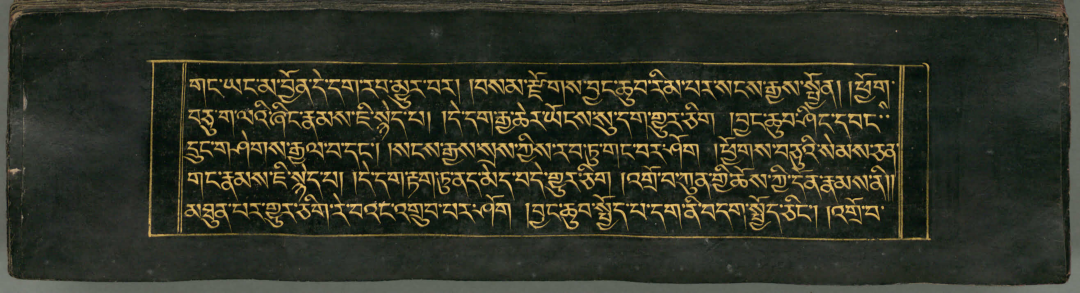 གང་ཡང་མ་བྱོན་དེ་དག་རབ་མྱུར་བར། །བསམ་རྫོགས་བྱང་ཆུབ་རིམ་པར་སངས་རྒྱས་སྤྱོན། །ཕྱོག་
བཅུ་ག་ལའི་ཞིང་རྣམས་ཇི་སྙེད་པ། །དེ་དག་རྒྱ་ཆེར་ཡོངས་སུ་དག་གྱུར་ཅིག །བྱང་ཆུབ་ཤིང་དབང་
དྲུང་ག་ཤེགས་རྒྱལ་བ་དང༌། །སངས་རྒྱས་སྲས་ཀྱིས་རབ་ཏུ་གང་བར་ཤོག །ཕྱོགས་བཅུའི་སེམས་ཅན་
གང་རྣམས་ཇི་སྙེད་པ། །དེ་དག་རྟག་ཏུ་ནད་མེད་བདེ་གྱུར་ཅིག །འགྲོ་བ་ཀུན་གྱི་ཆོས་ཀྱི་དོན་རྣམས་ནི།།
མཐུན་པར་གྱུར་ཅིག་རེ་བའང་འགྲུབ་པར་ཤོག །བྱང་ཆུབ་སྤྱོད་པ་དག་ནི་བདག་སྤྱོད་ཅིང༌། །འགྲོ་བ་